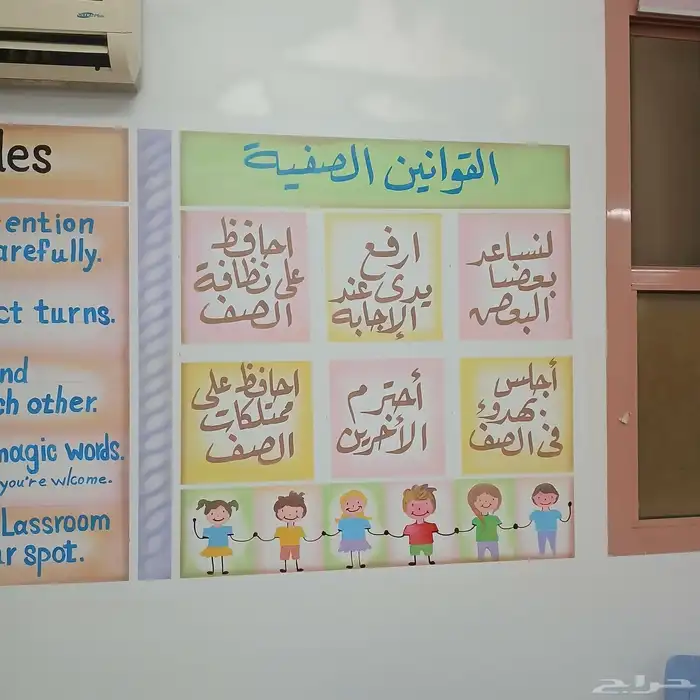 القوانين الصفية
لنساعد
بعضنا
البعض
ارفع
يدي عند
الإجابه
احافظ
على نظافة
الصف
أجلس
بهدوء
في الصف
أحترم
الأخرين
احافظ على
ممتلكات
الصف
les
ention
arefully.
ct turns.
nd
ch other.
magic words.
you're wlcome.
lassroom
r spot.
حراج